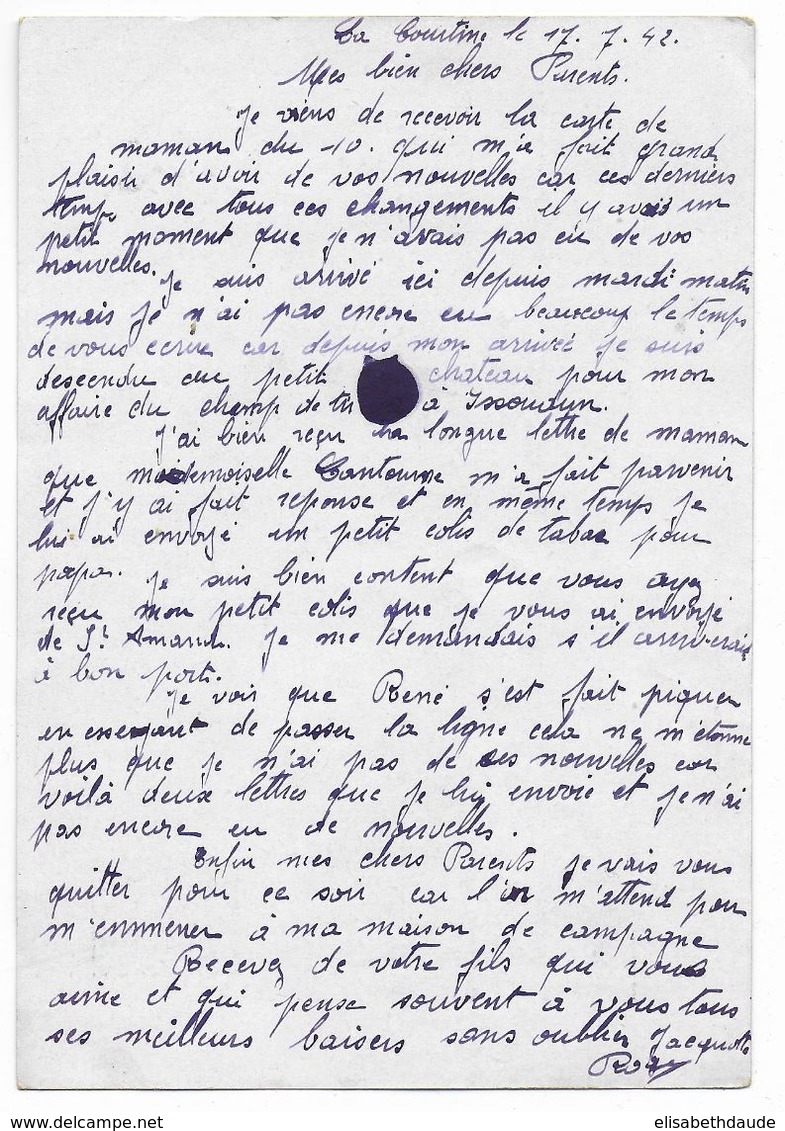 La Courtine le 17. 7. 42.
Mes bien chers Parents.
Je viens de recevoir la carte de
maman du 10. qui m'a fait grand
plaisir d'avoir de vos nouvelles car ces derniers
temps avec tous ces changements il y avais un
petit moment que je n'avais pas eu de vos
nouvelles.
Je suis arrivé ici depuis mardi matin
mais je n'ai pas encore eu beaucoup le temps
de vous ecrire car depuis mon arrivée je suis
descendu au petit chateau pour mon
affaire du champ de à Issoudun.
J'ai bien reçu la longue lettre de maman
que mademoiselle m'a fait parvenir
et j'y ai fait reponse et en même temps je
lui ai envoyé un petit colis de tabac pour
papa. Je suis bien content que vous ayez
reçu mon petit colis que je vous ai envoyé
de St Amand. Je me demandais s'il arriverais
à bon port.
Je vois que René s'est fait piquer
en de passer la ligne cela ne m'étonne
plus que je n'ai pas de ses nouvelles car
voilà deux lettres que je lui envoie et je n'ai
pas encore eu de nouvelles.
Enfin mes chers Parents je vais vous
quitter pour ce soir car l'on m'attend pour
m'emmener à ma maison de campagne
Recevez de votre fils qui vous
aime et qui pense souvent à vous tous
ses meilleurs baisers sans oublier Jacquotte
elisabethdaude